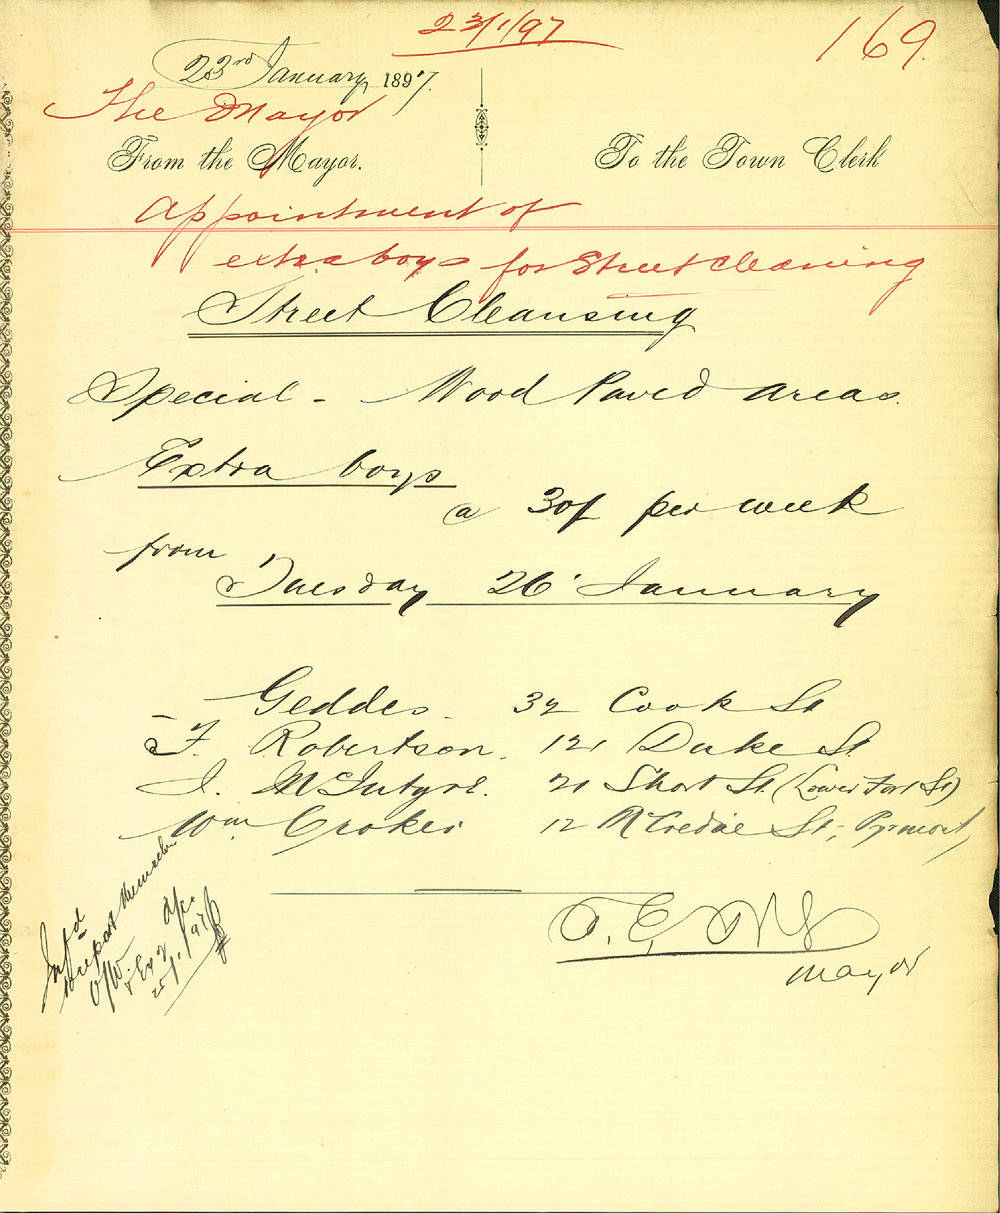 23/1/97
169.
23rd January 1897.
The Mayor
From the Mayor.
To the Town Clerk
Appointment of
extra boys for Street cleaning
Street Cleansing
Special - Wood Paved areas.
Extra boys
a 30/ per week
from
Tuesday 26 January
Geddes. 32 Cook St
F. Robertson. 121 Duke St.
J. McIntyre. 21 Short St. (Lower Fort St)
Wm Croker 12 McCredie St, Pyrmont
Mayor
Inf'd
to report themselves
25/1/97